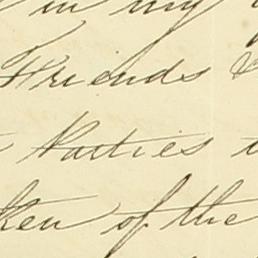 in my
Friends &
Parties
ken of the